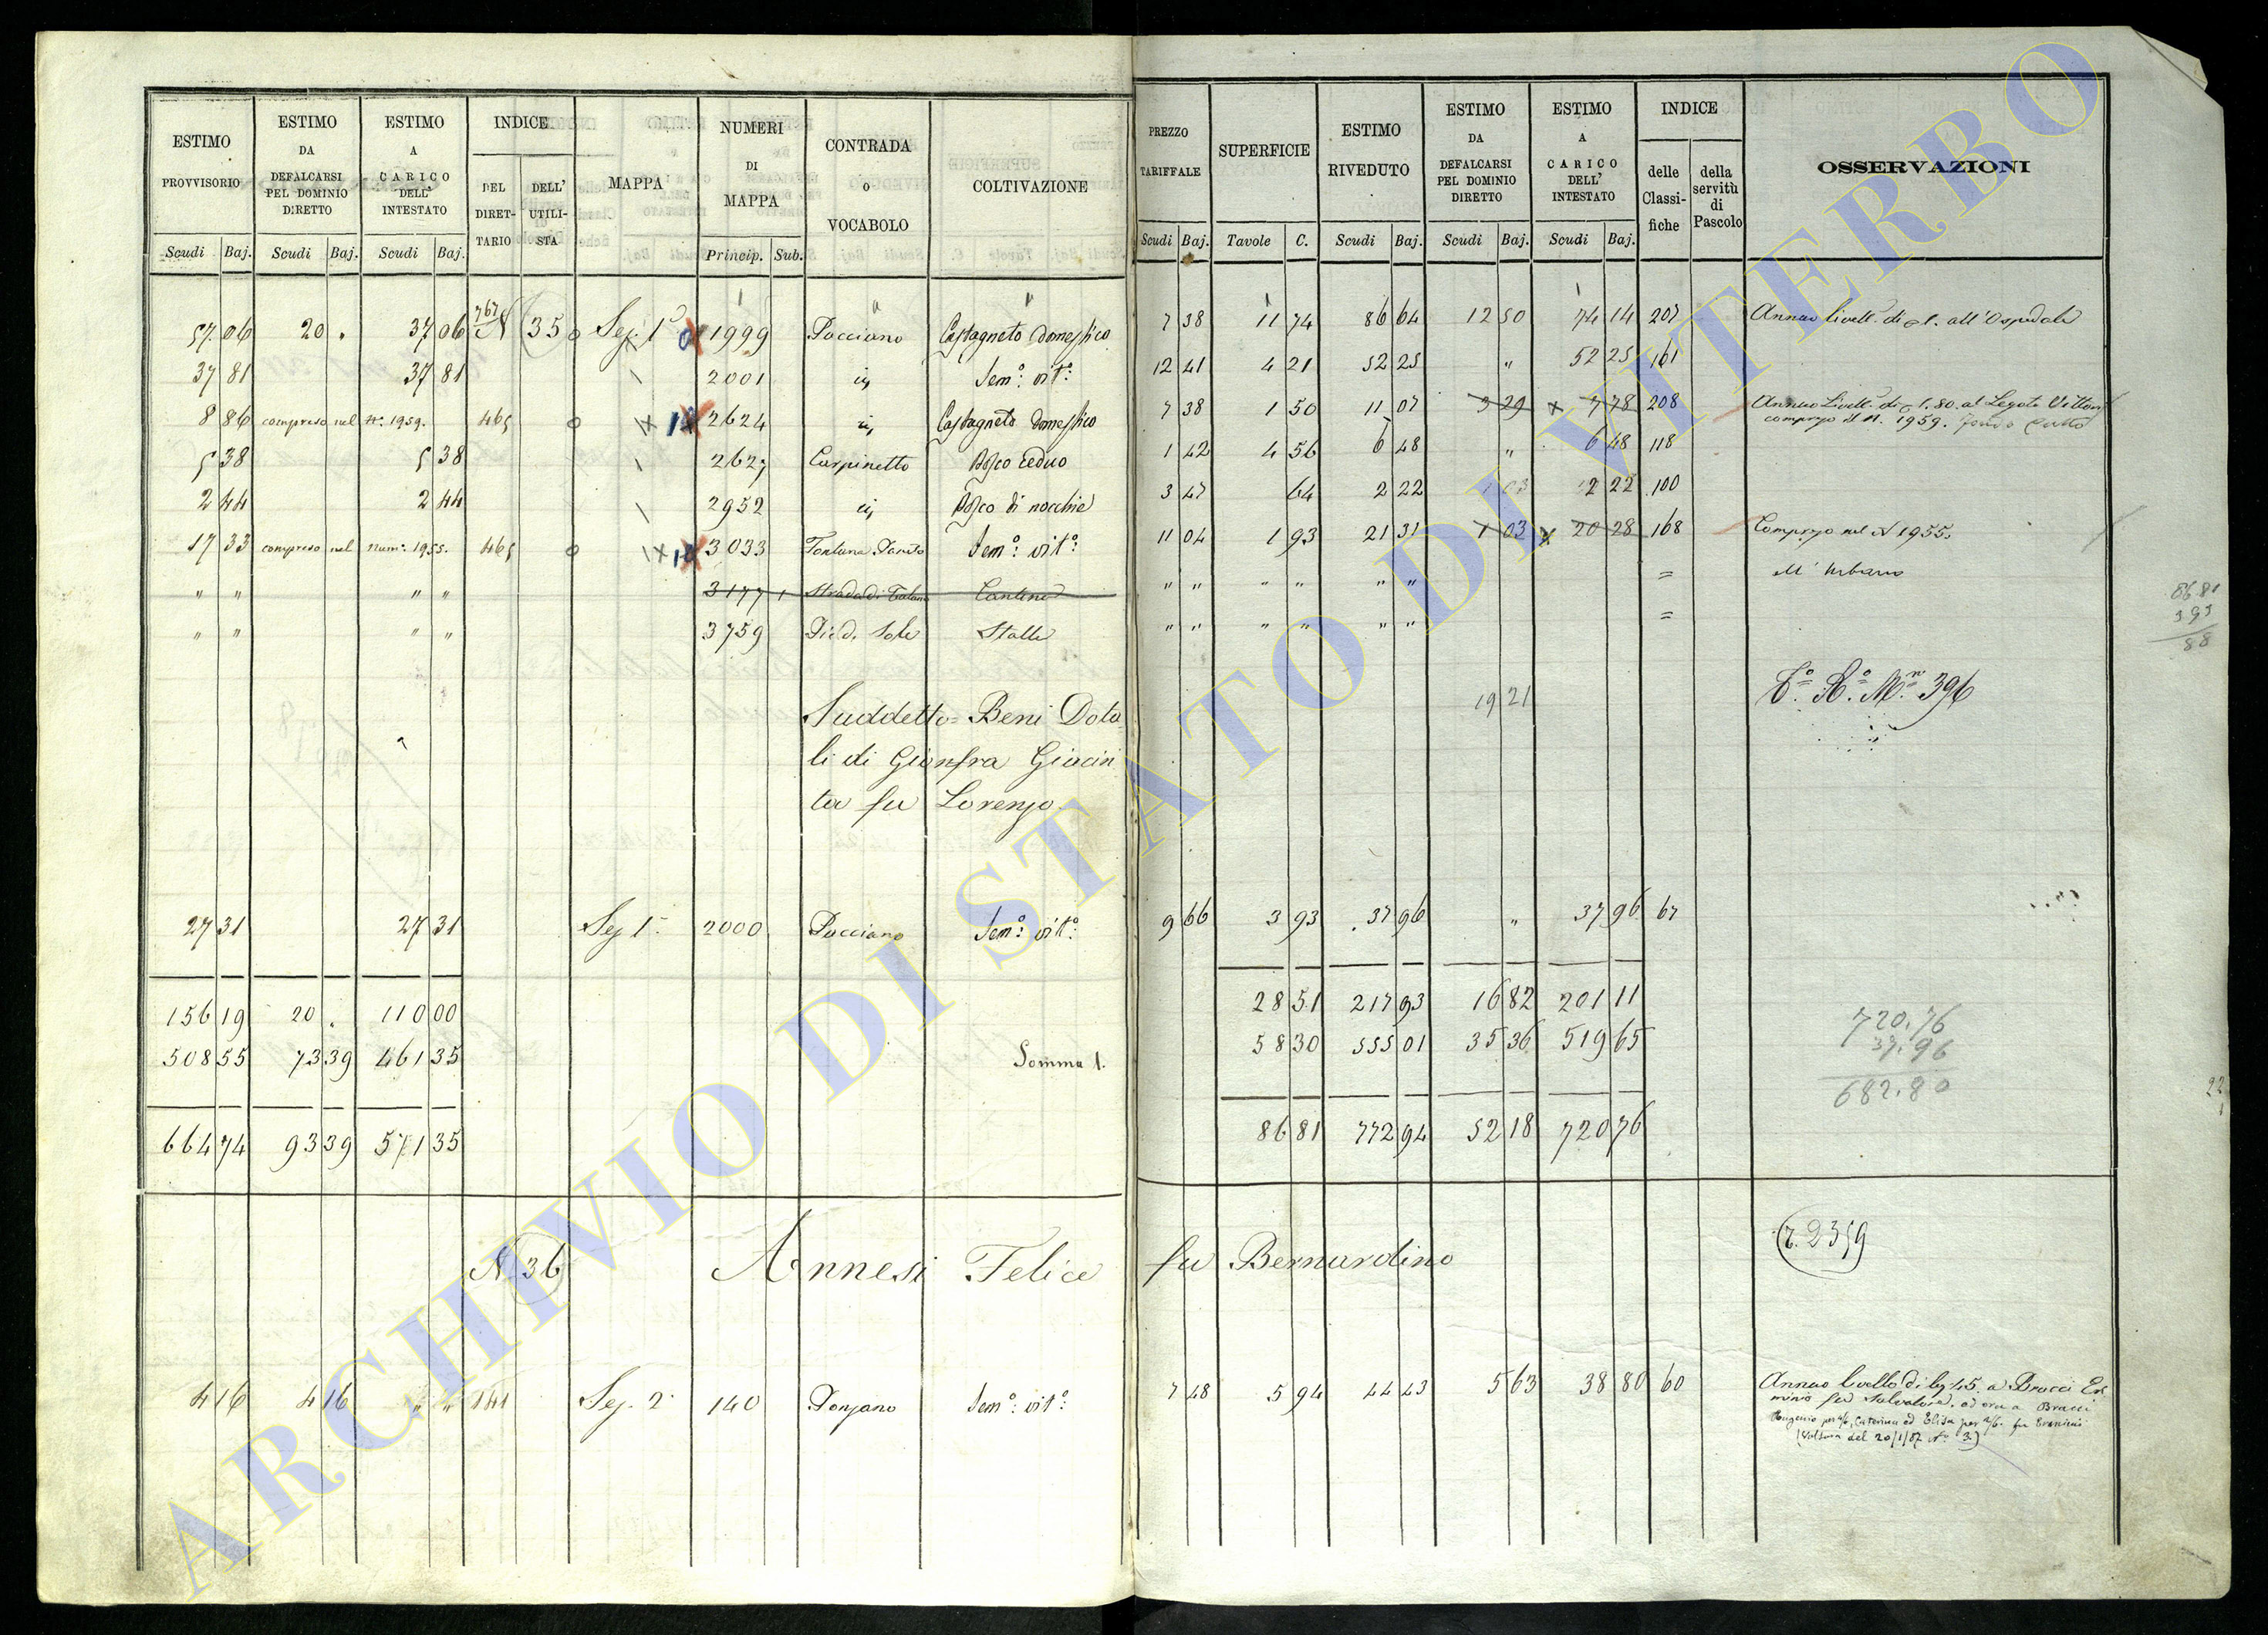 ESTIMO PROVVISORIO Scudi Baj. ESTIMO DA DEFALCARSI PEL DOMINIO DIRETTO Scudi Baj. ESTIMO A CARICO DELL' INTESTATO Scudi Baj. INDICE DEL DIRETTARIO DELL' UTILISTA MAPPA NUMERI DI MAPPA Princip. Sub. CONTRADA O VOCABOLO COLTIVAZIONE
PREZZO TARIFFALE Scudi Baj. SUPERFICIE Tavole C. ESTIMO RIVEDUTO Scudi Baj. ESTIMO DA DEFALCARSI PEL DOMINIO DIRETTO Scudi Baj. ESTIMO A CARICO DELL' INTESTATO Scudi Baj. INDICE delle Classifiche della servitù di Pascolo OSSERVAZIONI
57 06 20 " 37 06 767 N 35 Sez. 1ª 1999 Pacciano Castagneto domestico 7 38 11 74 86 64 12 50 74 14 207 Annuo livell. di all'Ospedale
37 81 37 81 2001 Sem.º vit.º 12 41 4 21 52 25 " 52 25 161
8 86 compreso nel N.º 1959. 465 2624 Castagneto domestico 7 38 1 50 11 07 3 29 7 78 208 Annuo Livell. di 1.80. al Legato
compreso il N. 1959.
5 38 5 38 2627 Carpinetto Bosco ceduo 1 42 4 56 6 48 " 6 48 118
2 44 2 44 2952 Bosco di nocchie 3 47 64 2 22 1 03 2 22 100
17 33 compreso nel num.º 1955. 465 3033 Fontana Sem.º vit.º 11 04 1 93 21 31 1 03 20 28 168 Compreso nel N 1955.
" " " " 3177 1 Strada di Cantina " " " " " " = Urbano
" " " " 3759 Piè di Sole Stalla " " " " " " =
86.81
3 93
88
19 21 396
Suddetto = Beni Dota
li di Gionfra Giacin
ta fu Lorenzo
27 31 27 31 Sez 1ª 2000 Pacciano Sem.º vit.º 9 66 3 93 37 96 " 37 96 67
156 19 20 " 110 00 28 51 217 93 16 82 201 11
508 55 73 39 461 35 Somma 1. 58 30 555 01 35 36 519 65
664 74 93 39 571 35 86 81 772 94 52 18 720 76
720.76
37.96
682.80
22
N. 36 Annesi Felice fu Bernardino
2359
4 16 4 16 " " 141 Sez. 2ª 140 Ponzano Sem.º vit.º 7 48 5 94 44 43 5 63 38 80 60 Annuo livello di a Bracci Er
minio fu Salvatore, ed ora a Bracci
Eugenio per 4/6, Caterina ed Elisa per 2/6 fu Erminio
(Voltura del 20/1/87 N.º 3)
ARCHIVIO DI STATO DI VITERBO